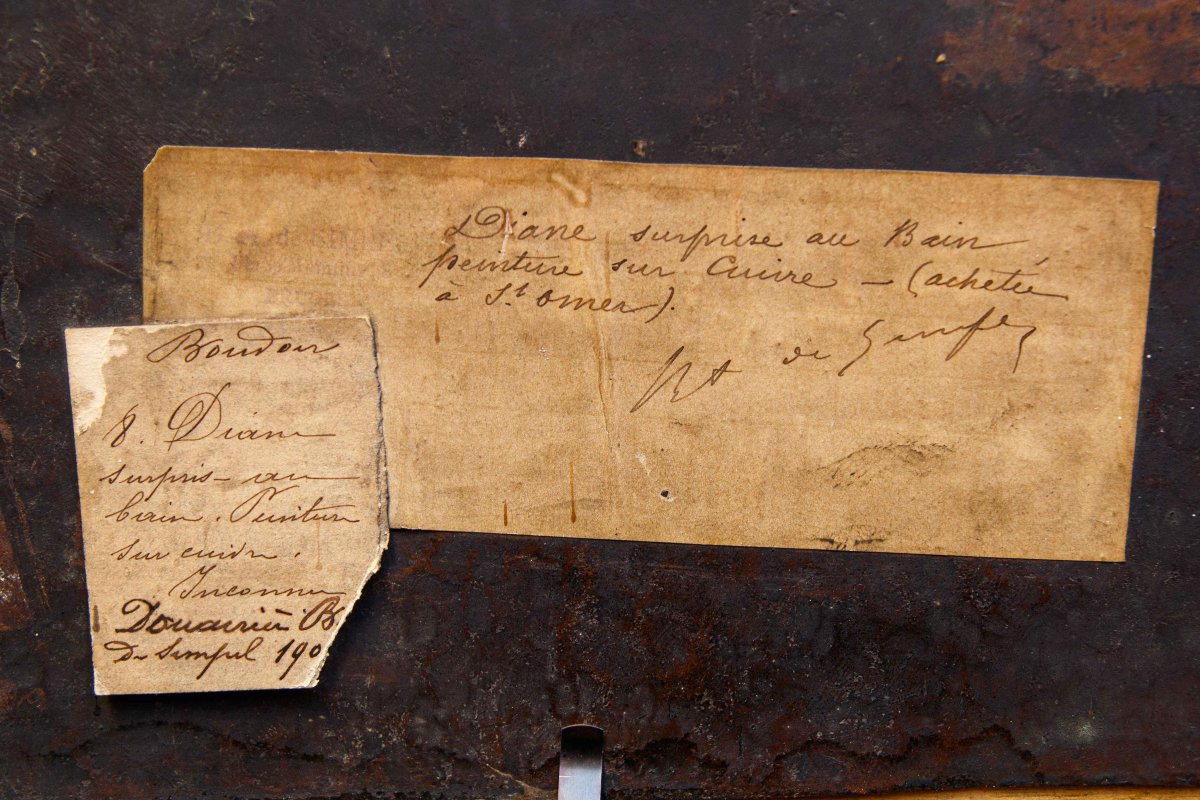 Diane surprise au Bain
peinture sur Cuivre – (achetée
à St Omer).
de
Boudoir
8. Diane
surpris- au
bain. Peinture
sur cuivre.
Inconnu
Douairière Bs
De Simpel 190